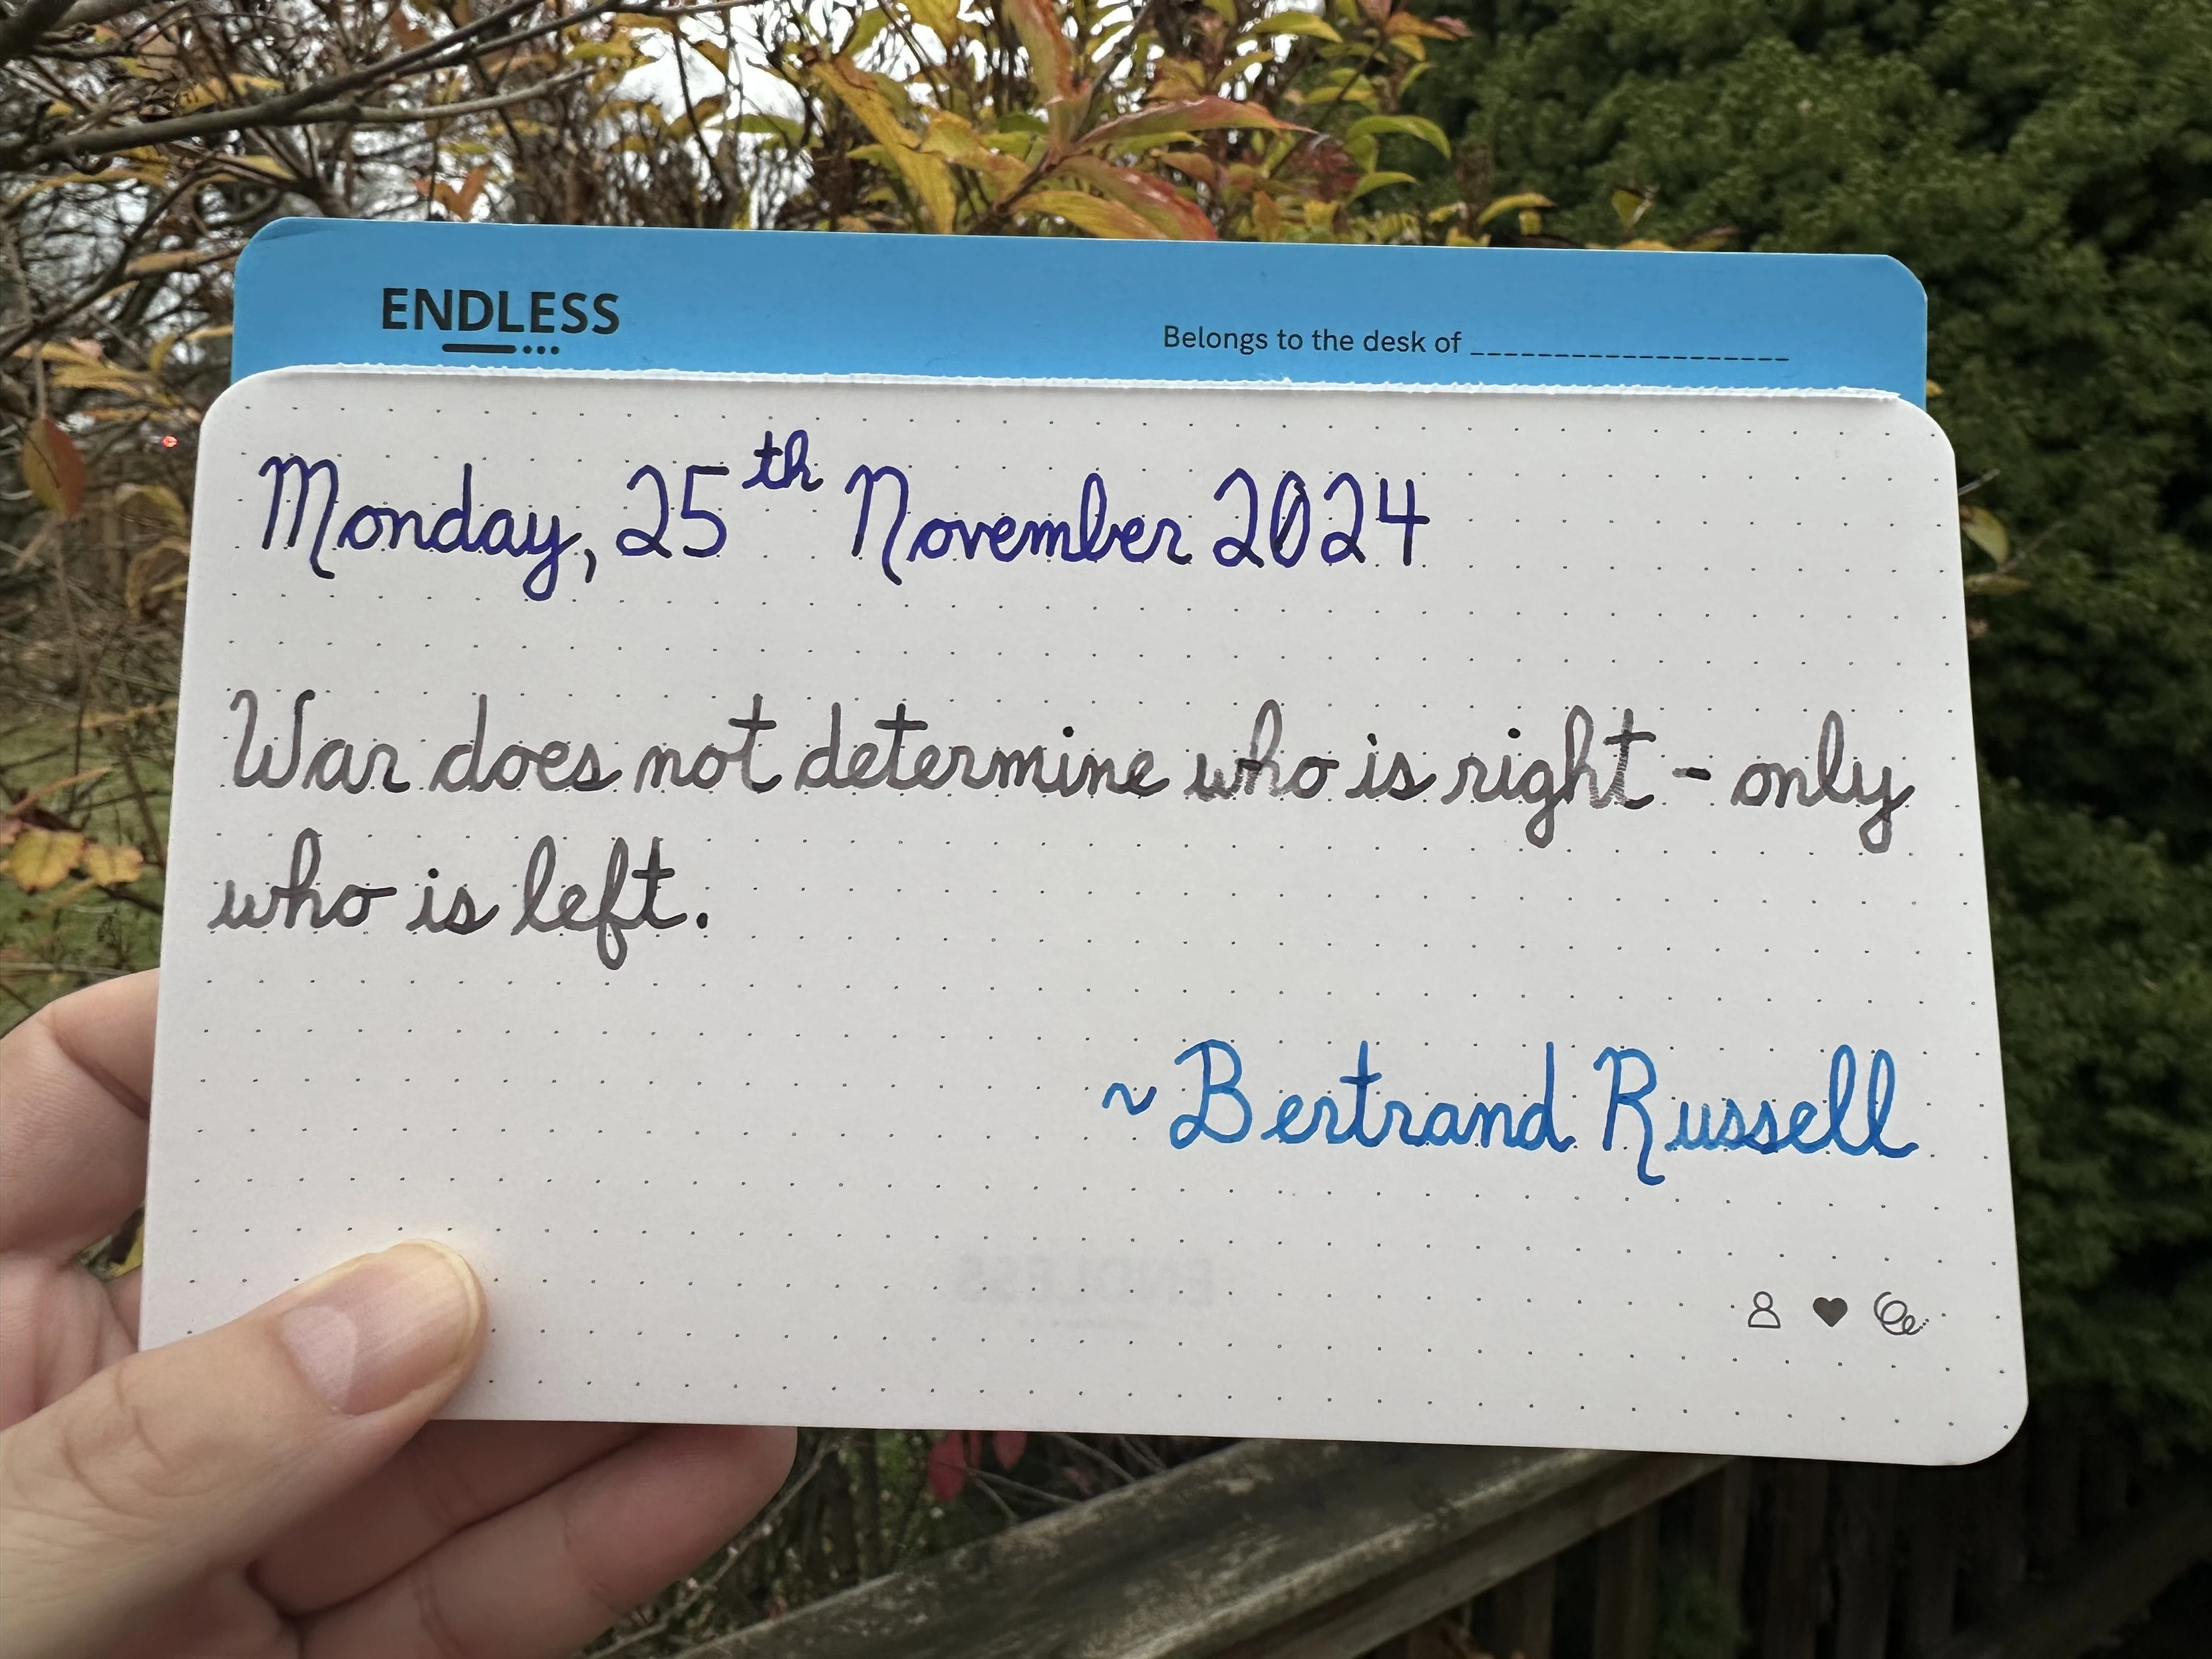 ENDLESS
Belongs to the desk of ___________________
Monday, 25th November 2024
War does not determine who is right - only
who is left.
~ Bertrand Russell
ENDLESS